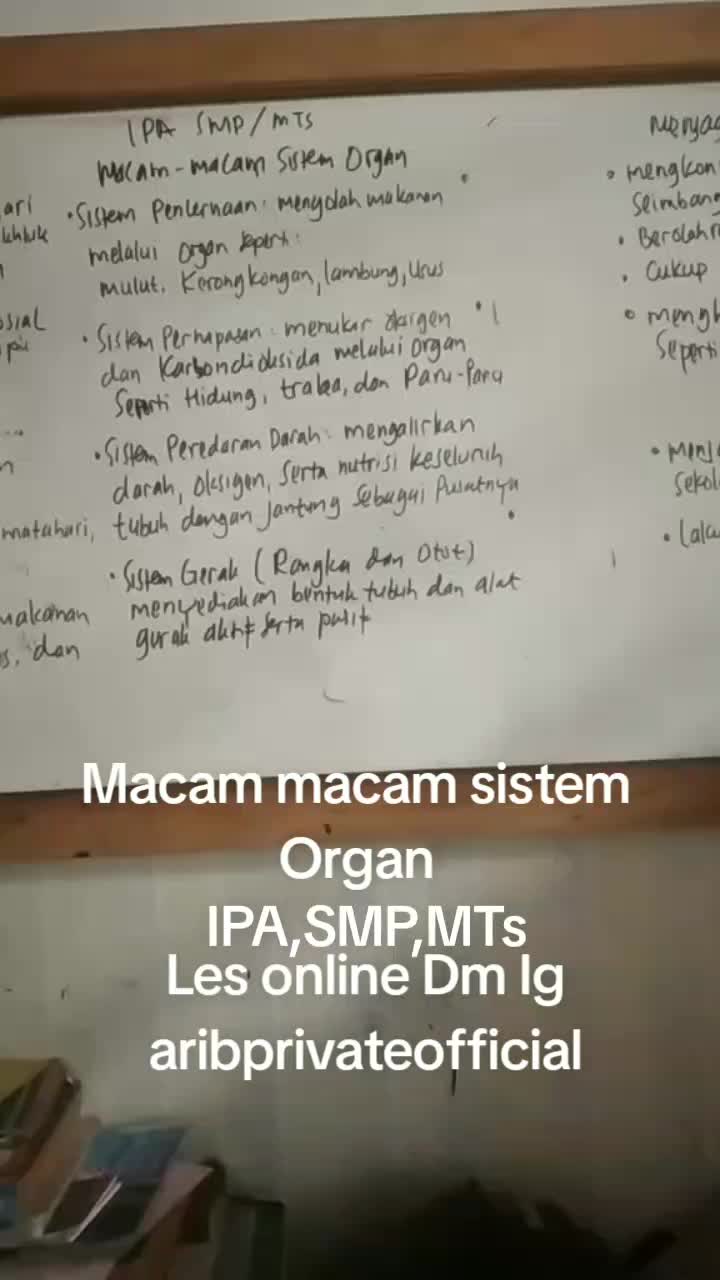 IPA SMP/MTS
Macam-macam Sistem Organ
• Sistem Pencernaan: mengolah makanan
melalui organ seperti:
mulut, Kerongkongan, lambung, usus
• Sistem Pernapasan: menukar oksigen
dan Karbondioksida melalui organ
Seperti Hidung, trakea, dan Paru-Paru
• Sistem Peredaran Darah: mengalirkan
darah, oksigen, serta nutrisi keseluruh
tubuh dengan jantung sebagai Pusatnya
• Sistem Gerak (Rangka dan Otot)
menyediakan bentuk tubuh dan alat
gerak aktif serta pasif
ari
osial
matahari,
makanan
s, dan
• mengkon
Seimbang
• Berolahr
• Cukup
• mengh
Seperti
• Menj
Sekol
• Laku
Macam macam sistem
Organ
IPA,SMP,MTs
Les online Dm Ig
aribprivateofficial